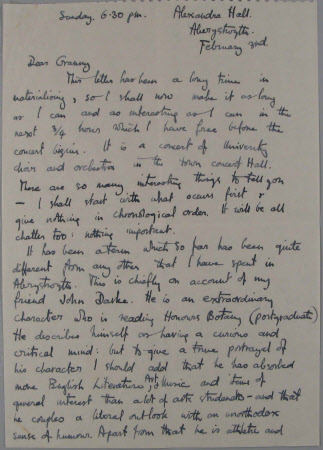 Sunday. 6.30 p.m. Alexandra Hall.
Aberystwyth.
February 2nd.
Dear Granny
This letter has been a long time in
materialising, so I shall now make it as long
as I can and as interesting as I can in the
next 3/4 hours which I have free before the
concert begins. It is a concert of University
choir and orchestra in the town concert Hall.
There are so many interesting things to tell you
— I shall start with what occurs first &
give nothing in chronological order. It will be all
chatter too: nothing important.
It has been a term which so far has been quite
different from any other that I have spent in
Aberystwyth. This is chiefly on account of my
friend John Darke. He is an extraordinary
character who is reading Honours Botany (postgraduate)
He describes himself as having a curious and
critical mind: but to give a true portrayal of
his character I should add that he has absorbed
more English Literature, Art, Music and items of
general interest than a lot of arts students – and that
he couples a liberal outlook with an unorthodox
sense of humour. Apart from that he is athletic and